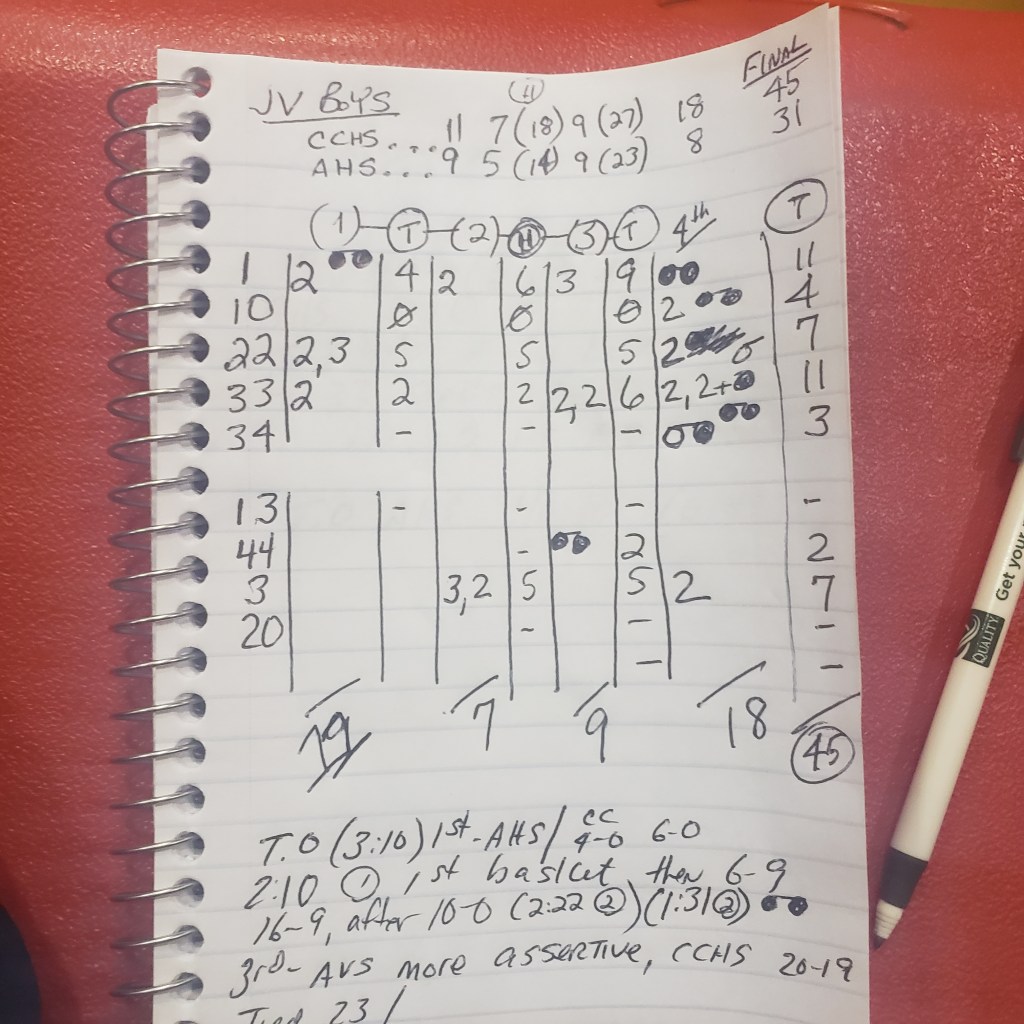 JV BOYS (H) FINAL
CCHS... 11 7 (18) 9 (27) 18 45
AHS.... 9 5 (14) 9 (23) 8 31
(1) T (2) H (3) T 4th T
1 2 4 2 6 3 9 11
10 0 0 0 2 4
22 2,3 5 5 5 2 7
33 2 2 2 2,2 6 2,2+ 11
34 - - - 3
13 - - - -
44 - 2 2
3 3,2 5 5 2 7
20 - - -
- -
7 9 18 45
T.O (3:10) 1st-AHS/ CC 4-0 6-0
2:10 1 1st basket, then 6-9
16-9, after 10-0 (2:22 2) (1:31 2)
3rd- AVS more assertive, CCHS 20-19
Tied 23/
Get your
QUALITY